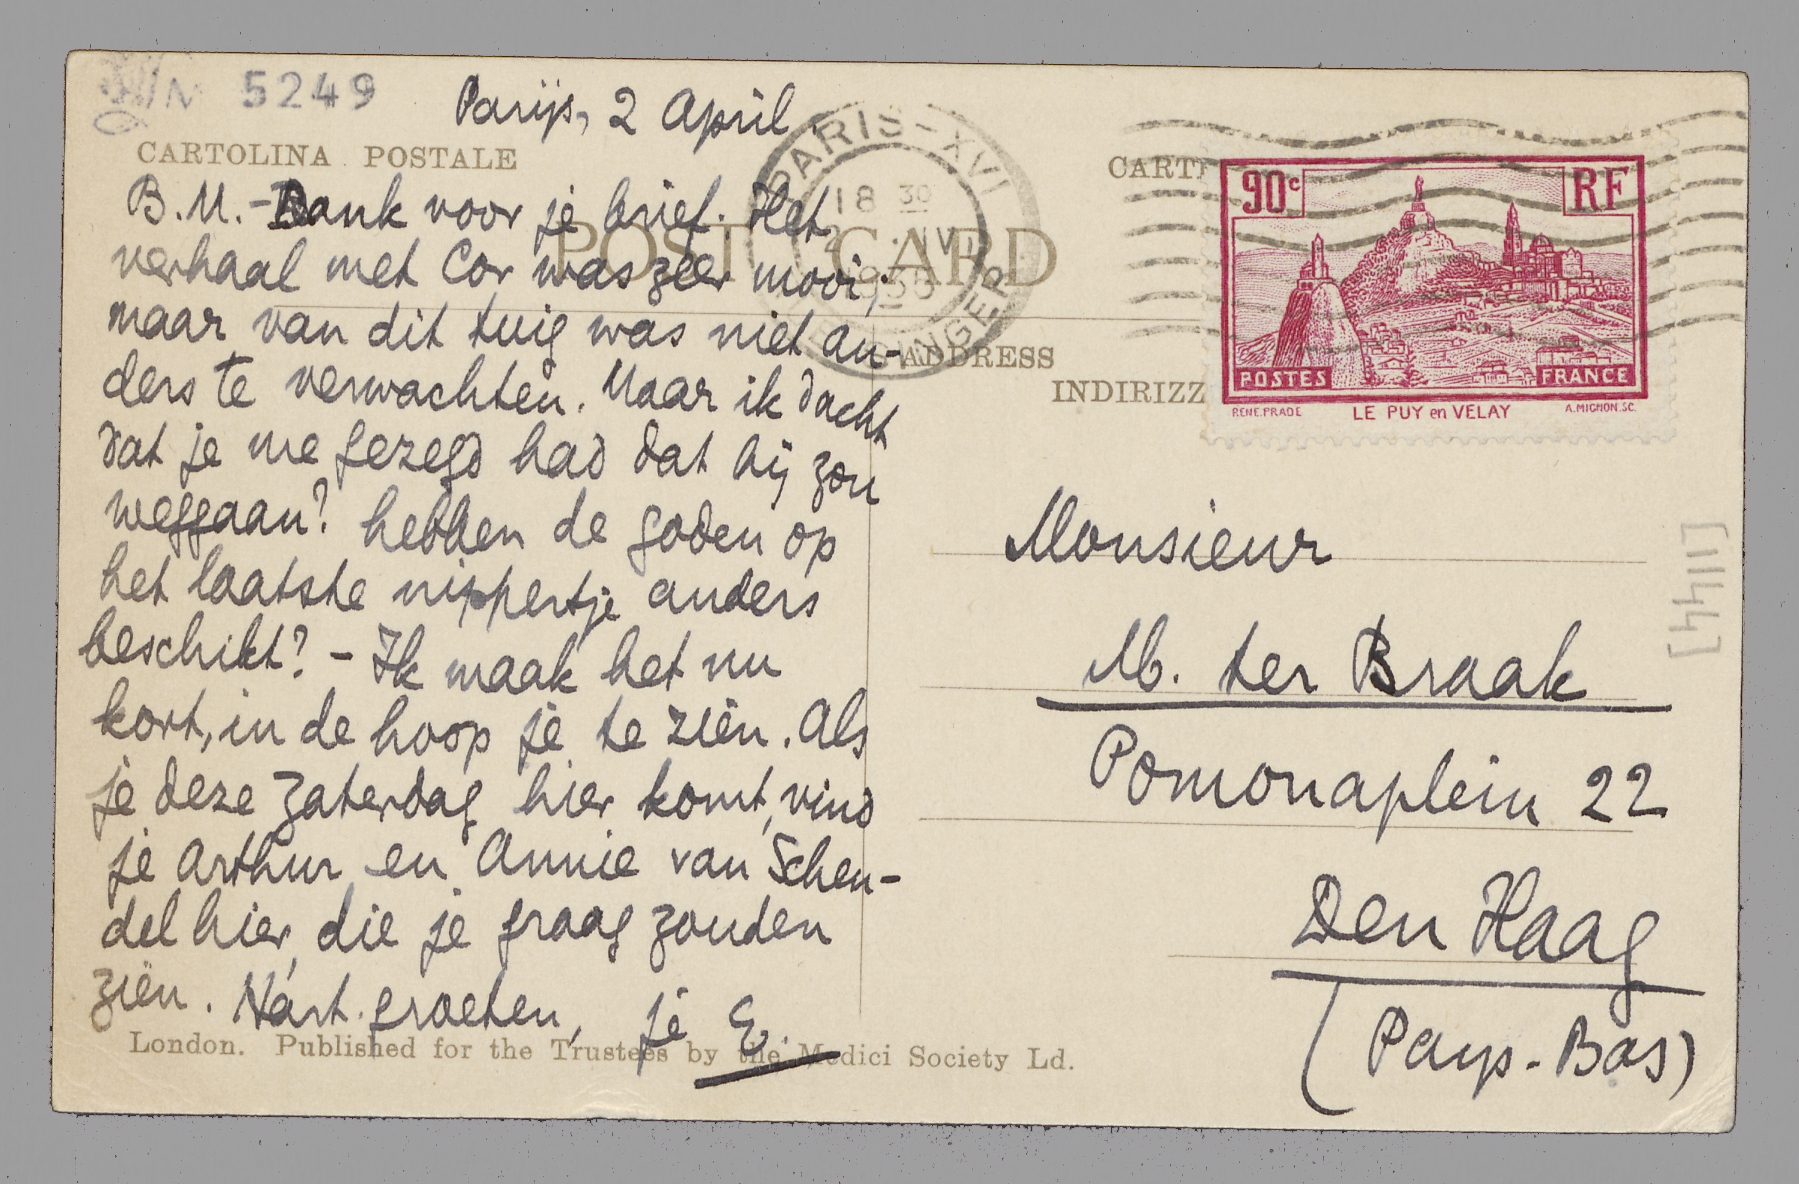 5249
Parijs, 2 April.
CARTOLINA POSTALE
B.M.- Dank voor je brief. Het
verhaal met Cor was zeer mooi,
maar van dit tuig was niet an-
ders te verwachten. Maar ik dacht
dat je me gezegd had dat hij zou
weggaan? hebben de goden op
het laatste nippertje anders
beschikt? - Ik maak het nu
kort, in de hoop je te zien. Als
je deze Zaterdag hier komt, vind
je Arthur en Annie van Schen-
del hier, die je graag zouden
zien. Hart. groeten, je E.
London. Published for the Trustees by the Medici Society Ld.
POST CARD
PARIS-XVI
18 30
2 IV
1935
SINGER
CARTE
ADDRESS
INDIRIZZ
90c RF
POSTES FRANCE
RENE.PRADE LE PUY en VELAY A.MIGNON.SC.
Monsieur
M. ter Braak
Pomonaplein 22
Den Haag
(Pays-Bas)
[1144]